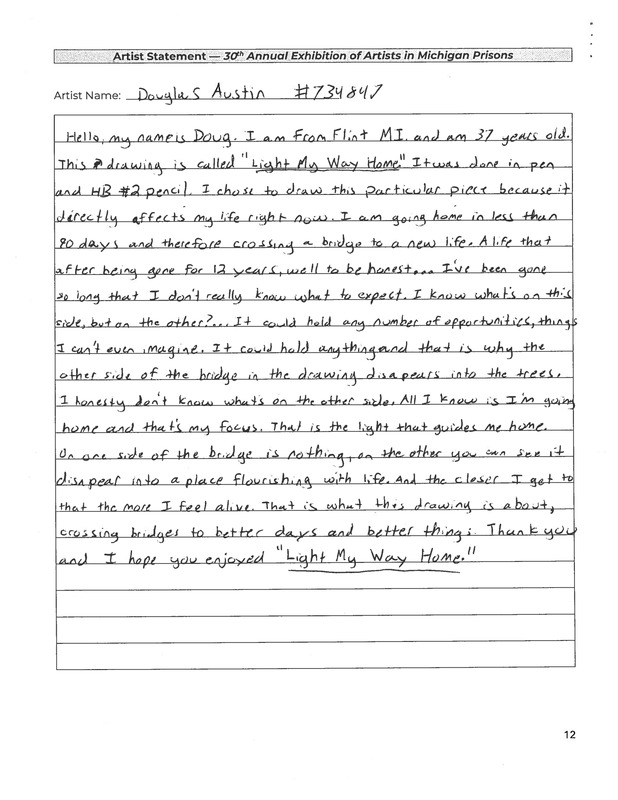 Artist Statement — 30th Annual Exhibition of Artists in Michigan Prisons
Artist Name: Douglas Austin #734847
Hello, my name is Doug. I am From Flint MI. and am 37 years old.
This drawing is called "Light My Way Home." It was done in pen
and HB #2 pencil. I chose to draw this particular piece because it
directly affects my life right now. I am going home in less than
80 days and therefore crossing a bridge to a new life. A life that
after being gone for 12 years, well to be honest... I've been gone
so long that I don't really know what to expect. I know what's on this
side, but on the other?... It could hold any number of opportunities, things
I can't even imagine. It could hold anything and that is why the
other side of the bridge in the drawing disapears into the trees.
I honesty don't know whats on the other side. All I know is I'm going
home and that's my focus. That is the light that guides me home.
On one side of the bridge is nothing, on the other you can see it
disapear into a place flourishing with life. And the closer I get to
that the more I feel alive. That is what this drawing is about,
crossing bridges to better days and better things. Thank you
and I hope you enjoyed "Light My Way Home."
12